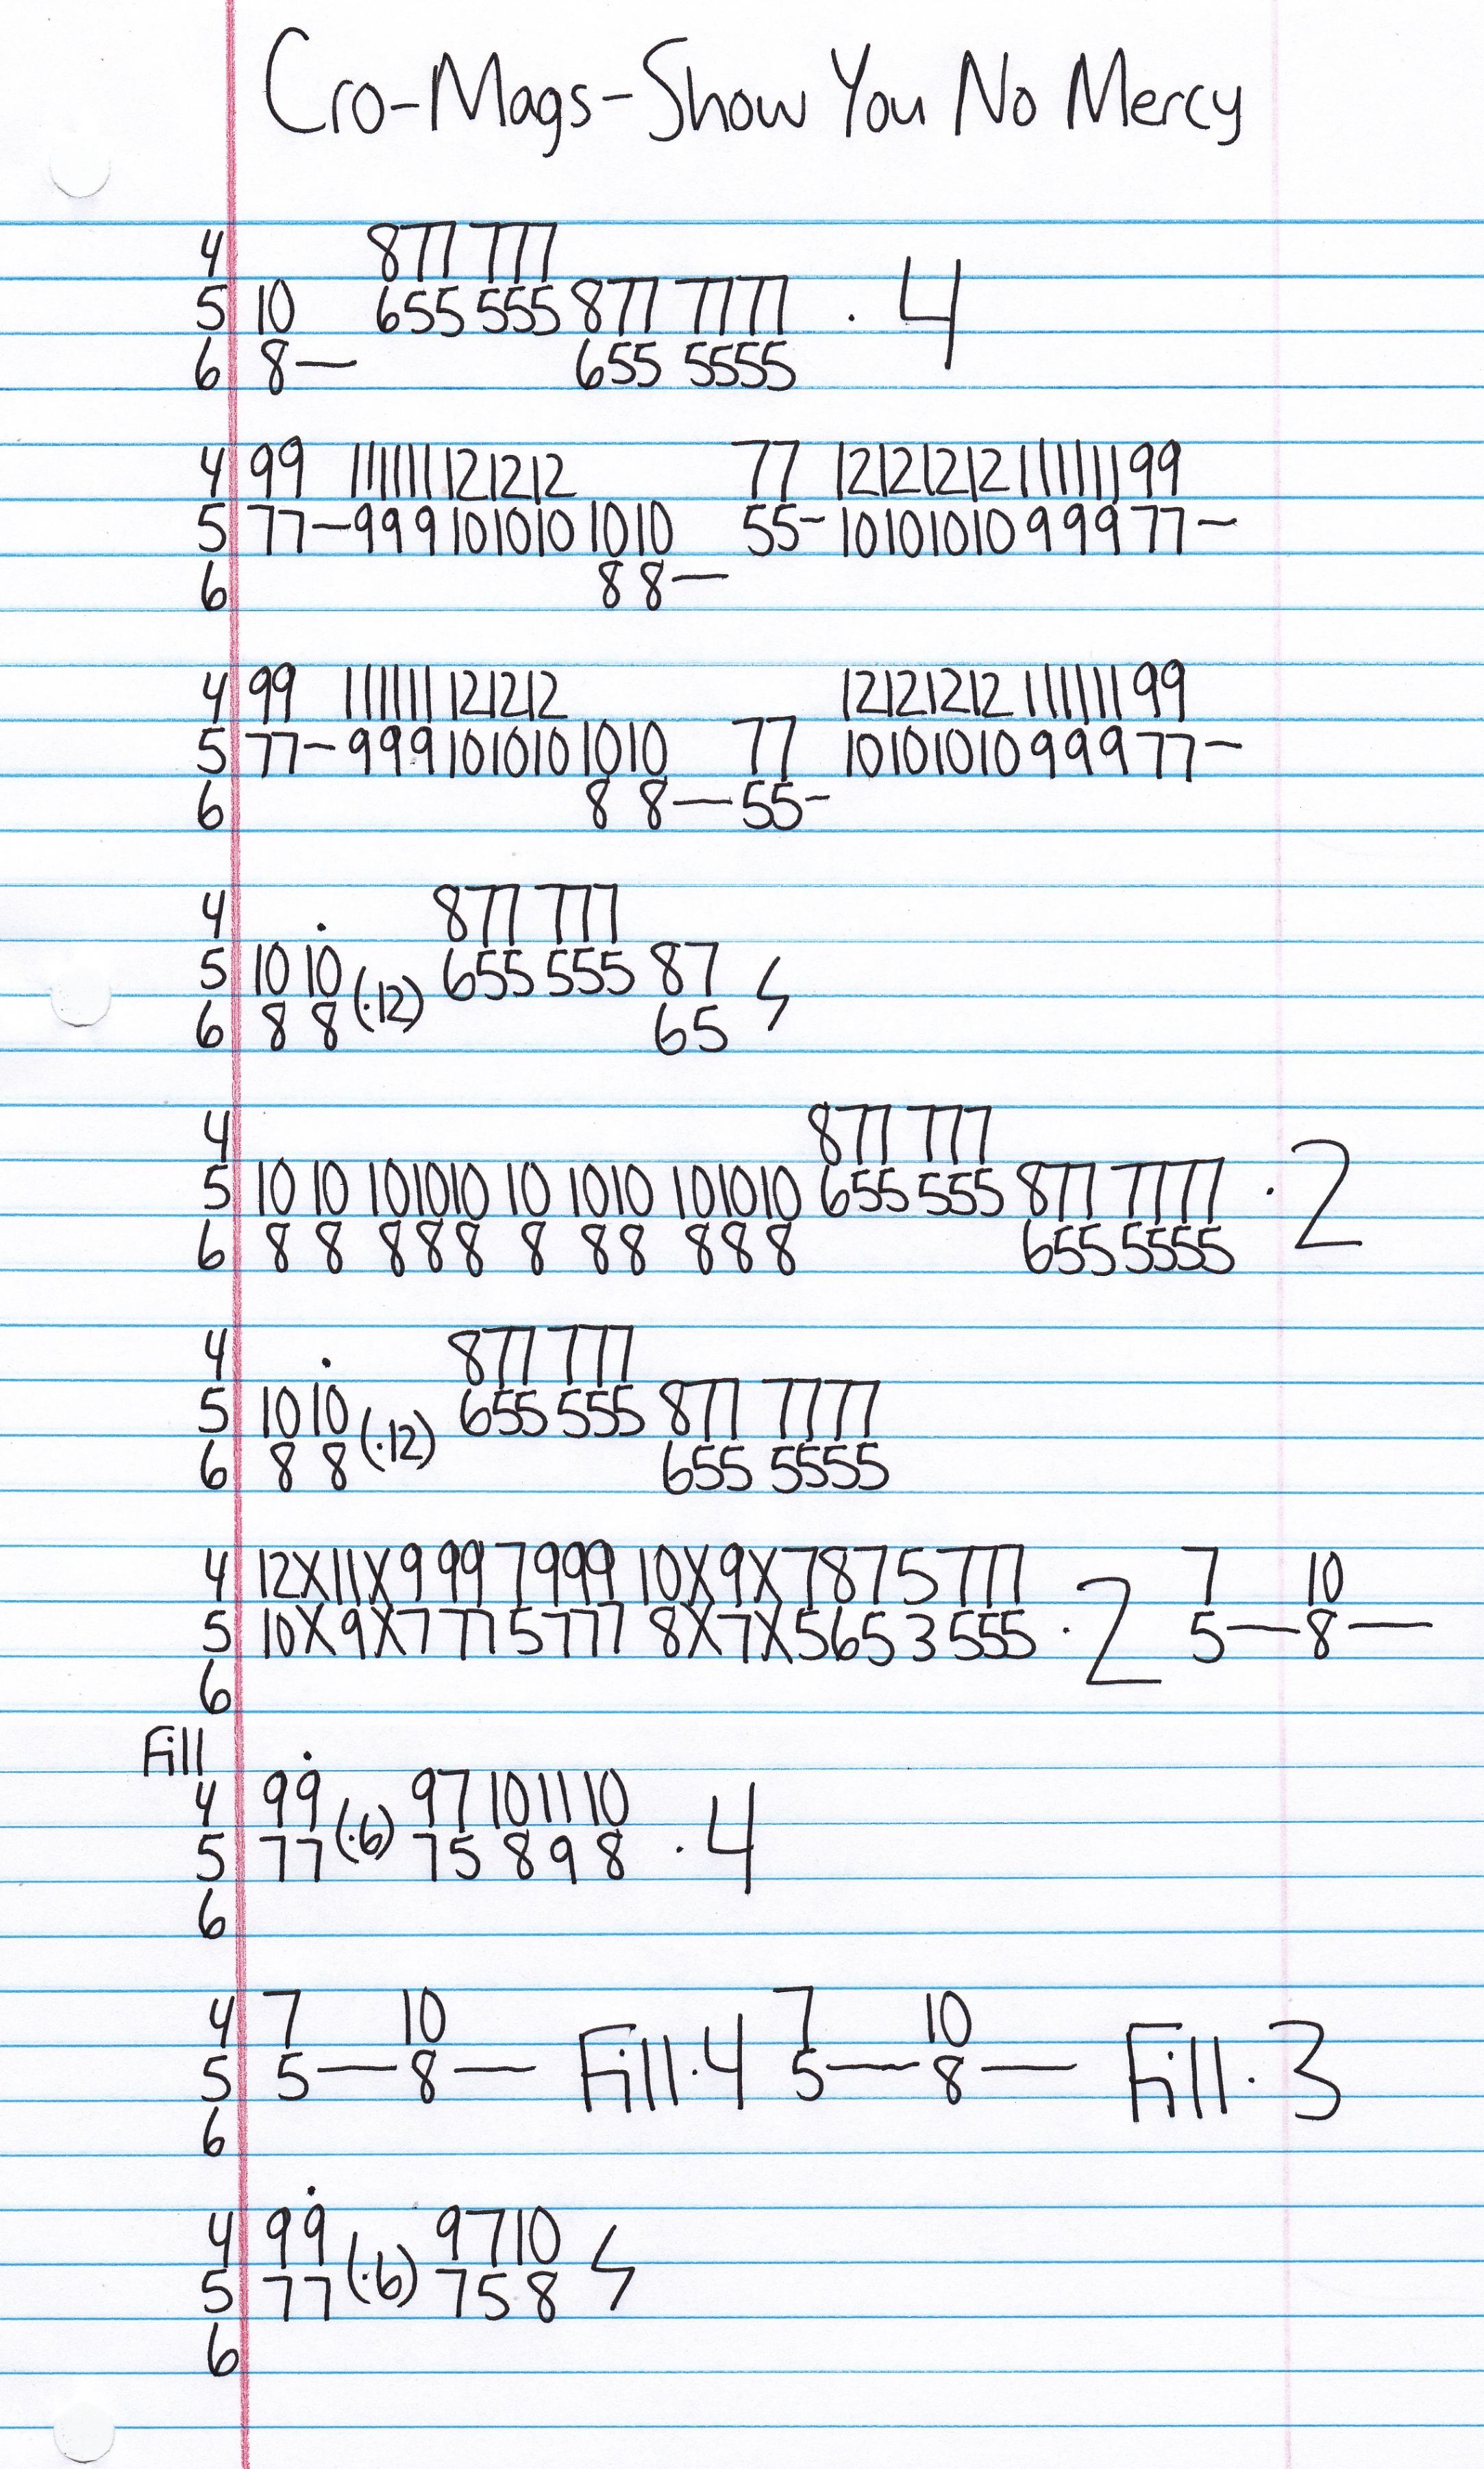 Cro-Mags-Show You No Mercy
4 877 777
5 10 655 555 877 7777 · 4
6 8— 655 5555
4 99 111111 121212 77 12121212 111111 99
5 77—999101010 1010 55-10101010 999 77—
6 88—
4 99 111111 121212 12121212 111111 99
5 77—999101010 1010 77 10101010 999 77—
6 8 8—55-
4 . 877 777
5 10 10 (·12) 655 555 87
6 8 8 65
4 877 777
5 10 10 101010 10 1010 101010 655 555 877 7777 · 2
6 8 8 888 8 88 888 655 5555
4 . 877 777
5 10 10 (·12) 655 555 877 7777
6 8 8 655 5555
4 12X11X9 99 7999 10X9X7875 777 7 10
5 10X9X7 77 5777 8X7X5653 555 · 2 5—8—
6
Fill .
4 99 (·6) 97 10 11 10 · 4
5 77 75 8 9 8
6
4 7 10 7 10
5 5—8— Fill·4 5—8— Fill·3
6
4 99 (·6) 9710
5 77 758
6